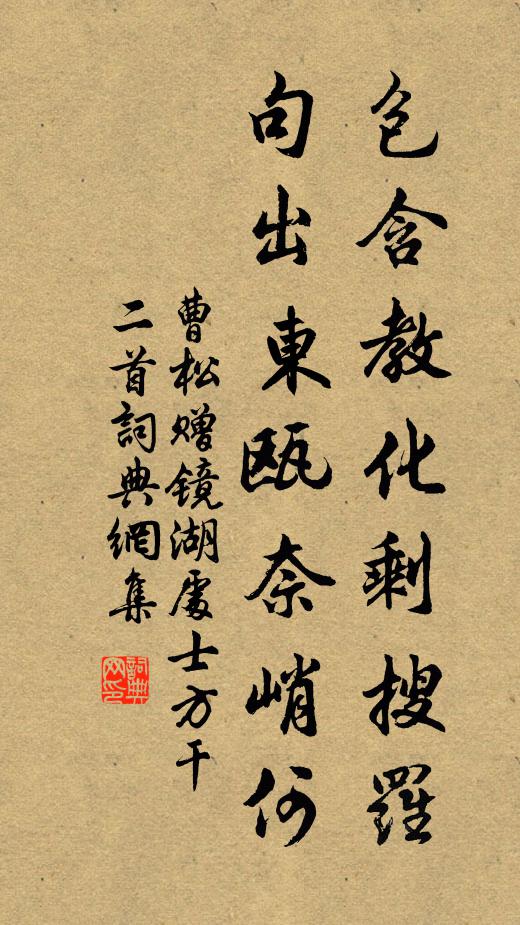 包含教化剩搜羅
句出東甌奈峭何
曹松赠镜湖處士方干
二首詞典網集
詞典网印